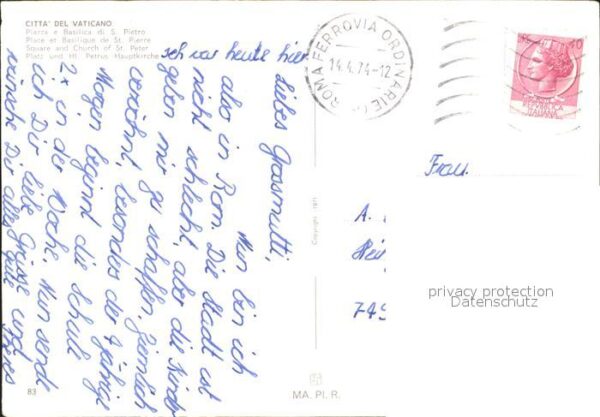 CITTA' DEL VATICANO
Piazza e Basilica di S. Pietro
Place et Basilique de St. Pierre
Square and Church of St. Peter
Platz und Hl. Petrus Hauptkirche
sch war heute hier
Liebes Grossmutti,
Nun bin ich
also in Rom. Die Stadt ist
nicht schlecht, aber die Kinder
geben mir zu schaffen. Ziemlich
verwöhnt, besonders der 7jährige
Morgen beginnt die Schule
2x in der Woche. Nun sende
ich Dir liebe Grüsse und
wünsche Dir alles gute
ROMA FERROVIA ORDINARIE
14.4.74-12
40
REPUBBLICA
ITALIANA
Frau
A.
749
Copyright 1971
83
MA. PI. R.
privacy protection
Datenschutz